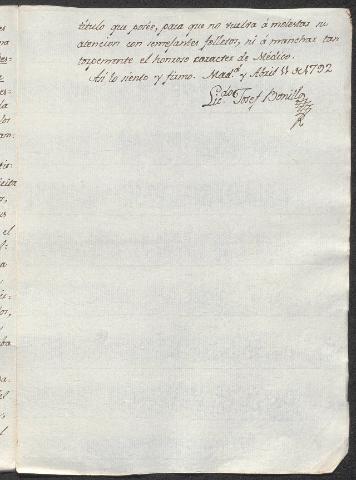 título que posée, para que no vuelva á molestar su
atencion con semejantes folletos, ni á manchar tan
torpemente el honroso caracter de Médico.
Asi lo siento y firmo. Mad.d y Abril 11 de 1792
Lic.do Josef Bonillo